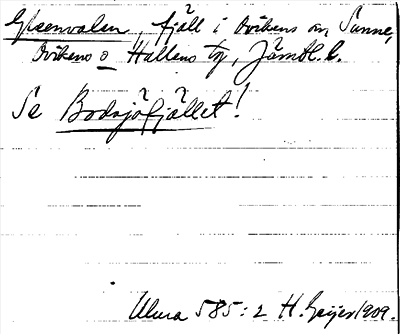 Glsenvalen, fjäll i Ovikens sn, Sunne,
Ovikens o Hallens tg, Jämtl. l.
Se Bodsjöfjället!
Ulma 585:2 H. Geijer 1909.